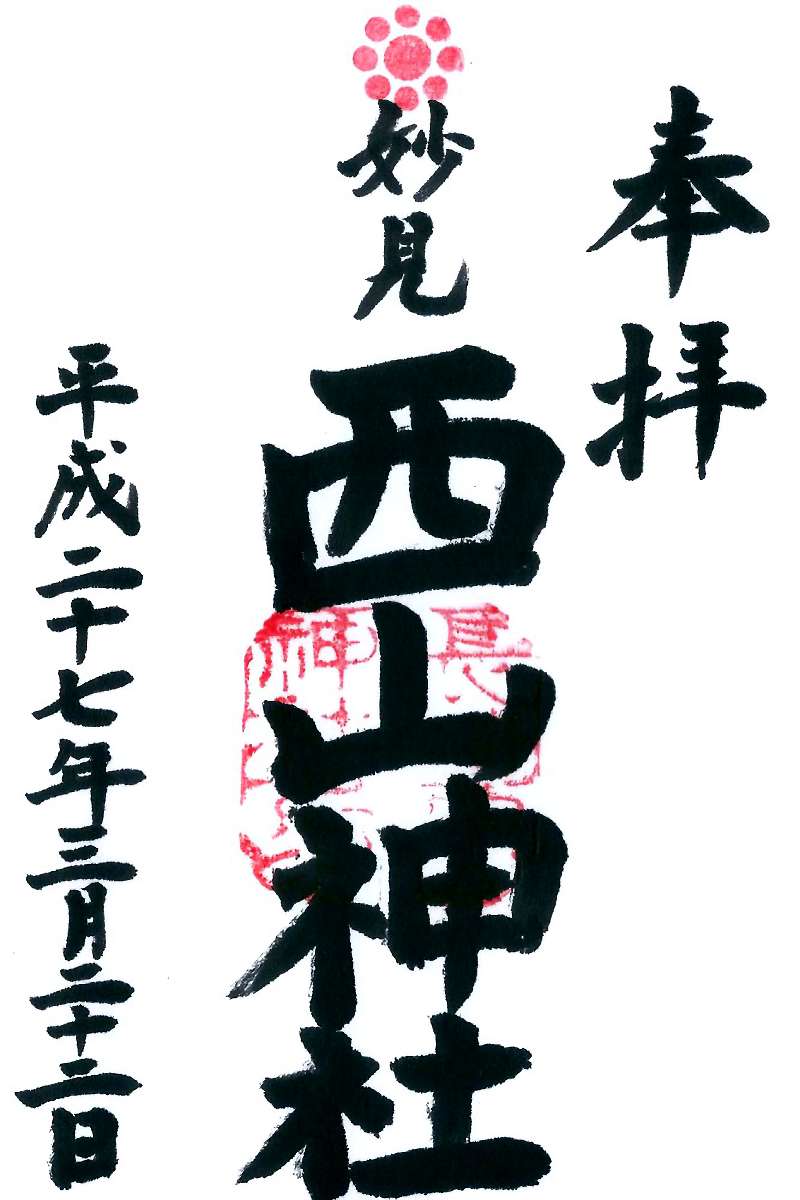 奉拝
妙見
西山神社
平成二十七年三月二十二日